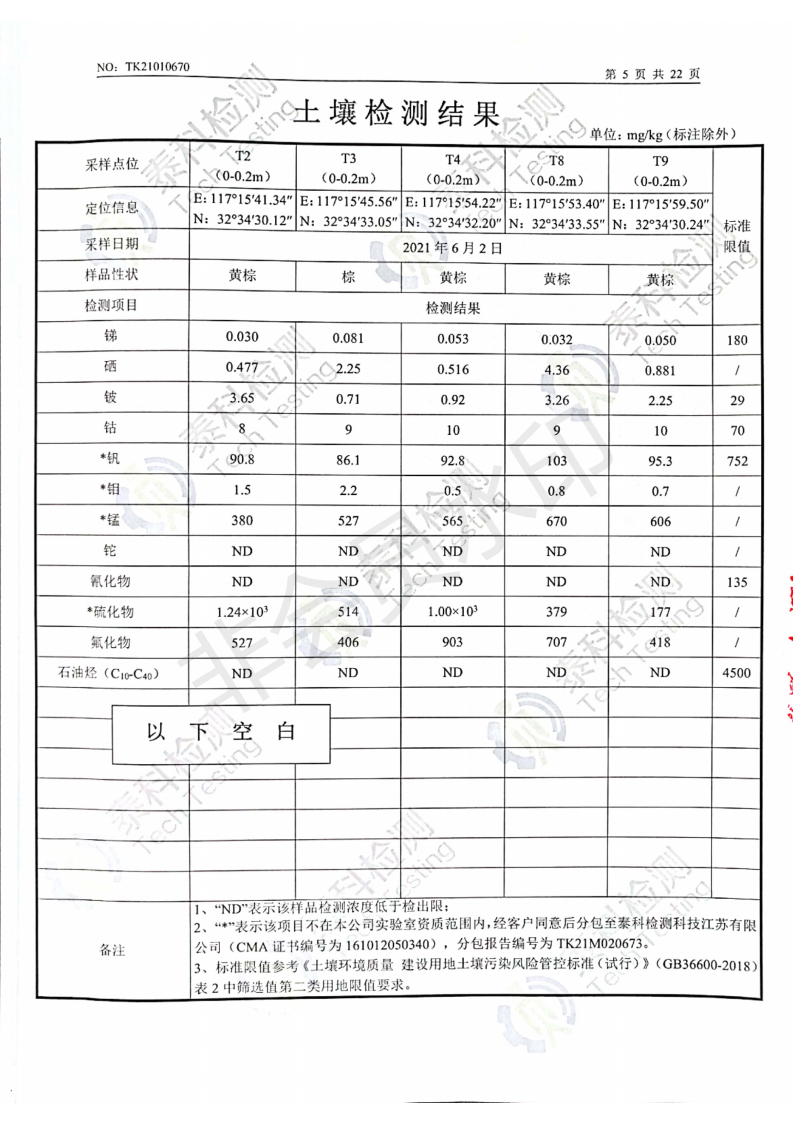 NO: TK21010670
第 5 页 共 22 页
土壤检测结果
单位: mg/kg (标注除外)
采样点位 T2 (0-0.2m) T3 (0-0.2m) T4 (0-0.2m) T8 (0-0.2m) T9 (0-0.2m) 标准限值
定位信息 E: 117°15′41.34″ N: 32°34′30.12″ E: 117°15′45.56″ N: 32°34′33.05″ E: 117°15′54.22″ N: 32°34′32.20″ E: 117°15′53.40″ N: 32°34′33.55″ E: 117°15′59.50″ N: 32°34′30.24″
采样日期 2021 年 6 月 2 日
样品性状 黄棕 棕 黄棕 黄棕 黄棕
检测项目 检测结果
锑 0.030 0.081 0.053 0.032 0.050 180
硒 0.477 2.25 0.516 4.36 0.881 /
铍 3.65 0.71 0.92 3.26 2.25 29
钴 8 9 10 9 10 70
*钒 90.8 86.1 92.8 103 95.3 752
*钼 1.5 2.2 0.5 0.8 0.7 /
*锰 380 527 565 670 606 /
铊 ND ND ND ND ND /
氰化物 ND ND ND ND ND 135
*硫化物 1.24×10³ 514 1.00×10³ 379 177 /
氟化物 527 406 903 707 418 /
石油烃（C₁₀-C₄₀） ND ND ND ND ND 4500
以下空白
备注
1、“ND”表示该样品检测浓度低于检出限;
2、“*”表示该项目不在本公司实验室资质范围内,经客户同意后分包至泰科检测科技江苏有限
公司（CMA 证书编号为 161012050340）, 分包报告编号为 TK21M020673。
3、标准限值参考《土壤环境质量 建设用地土壤污染风险管控标准（试行）》（GB36600-2018）
表 2 中筛选值第二类用地限值要求。
泰科检测
Tech Testing
非会员水印